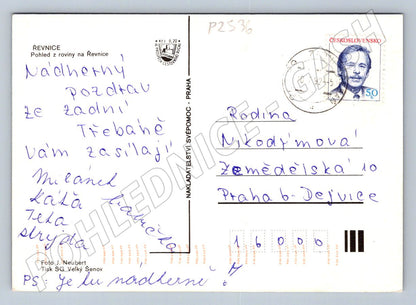 P2536
ŘEVNICE
Pohled z roviny na Řevnice
Kčs 0,70
Nádherný
pozdrav
ze zadní
Třebáně
Vám zasílají
Milánek
Káťa babička
Teta
strýda
Foto J. Neubert
Tisk SG, Velký Šenov
PS: Je tu nádherně!
NAKLADATELSTVÍ SVÉPOMOC - PRAHA
ČESKOSLOVENSKO
50
Rodina
Nikodýmová
Zemědělská 10
Praha 6 - Dejvice
16000
POHLEDNICE - GACH